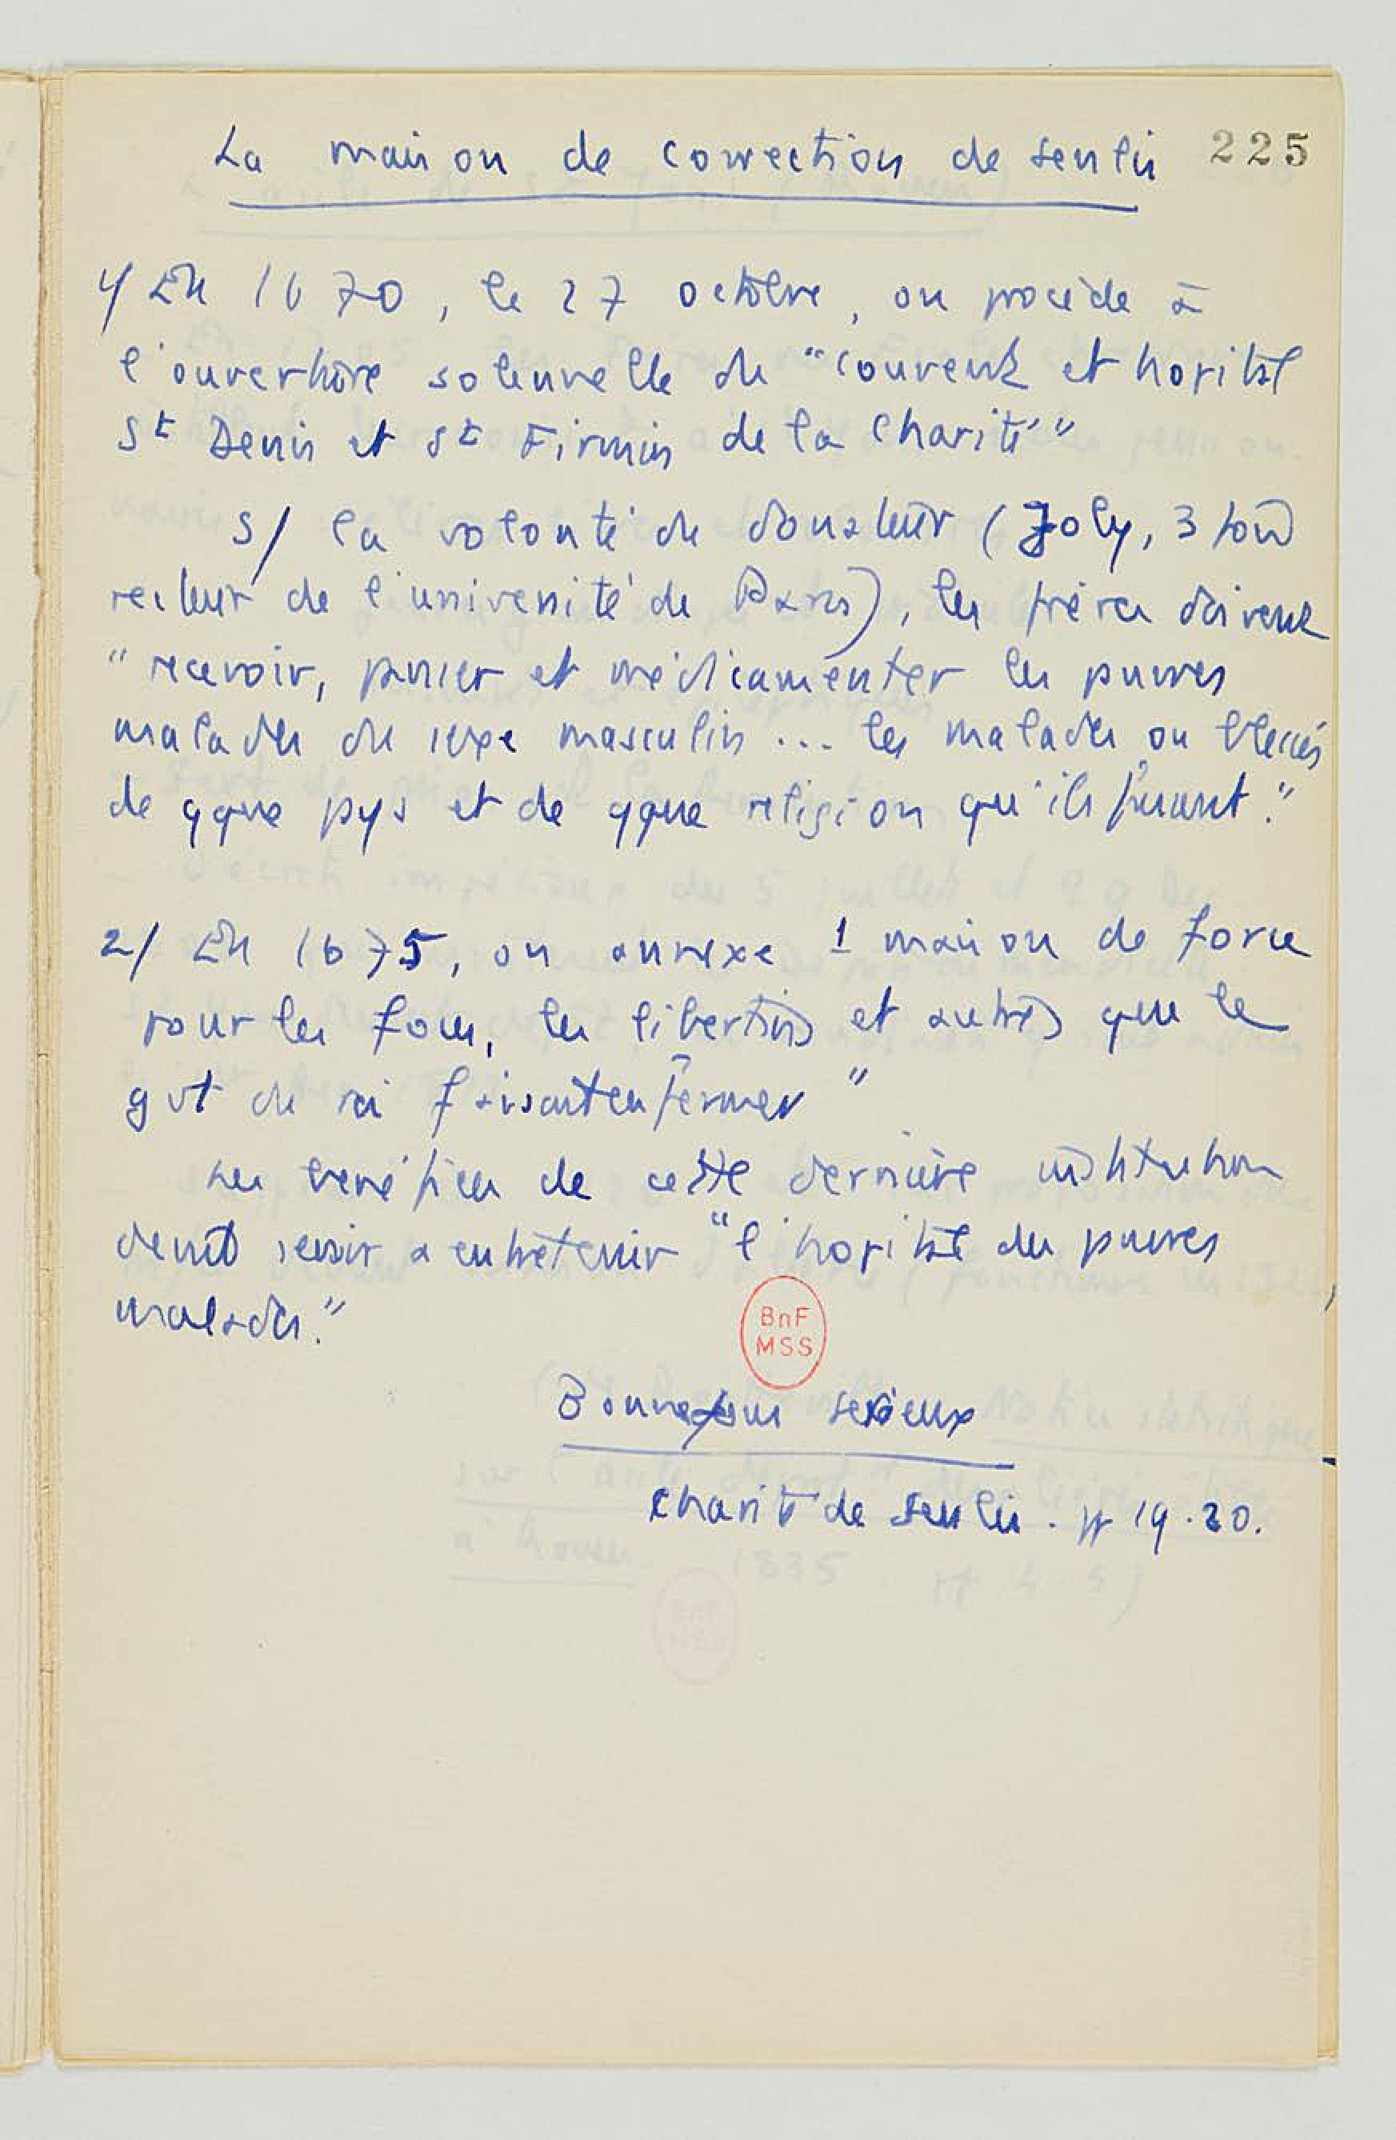 La maison de correction de Senlis 225
1/ En 1670, le 27 octobre, on procède à
l'ouverture solennelle du "couvent et hopital
St Denis et St Firmin de la Charité"
S/ la volonté du donateur (Joly, 3 fois
recteur de l'université de Paris), les frères doivent
"recevoir, panser et médicamenter les pauvres
malades du sexe masculin... les malades ou blessés
de qque pays et de qque religion qu'ils fussent."
2/ En 1675, on annexe 1 maison de force
pour les fous, les libertins et autres que le
gvt du roi faisait enfermer"
Les bénéfices de cette dernière institution
devait servir a entretenir "l'hopital des pauvres
malades."
BnF
MSS
Bonnafous Sérieux
Charité de Senlis. pp 19.20.